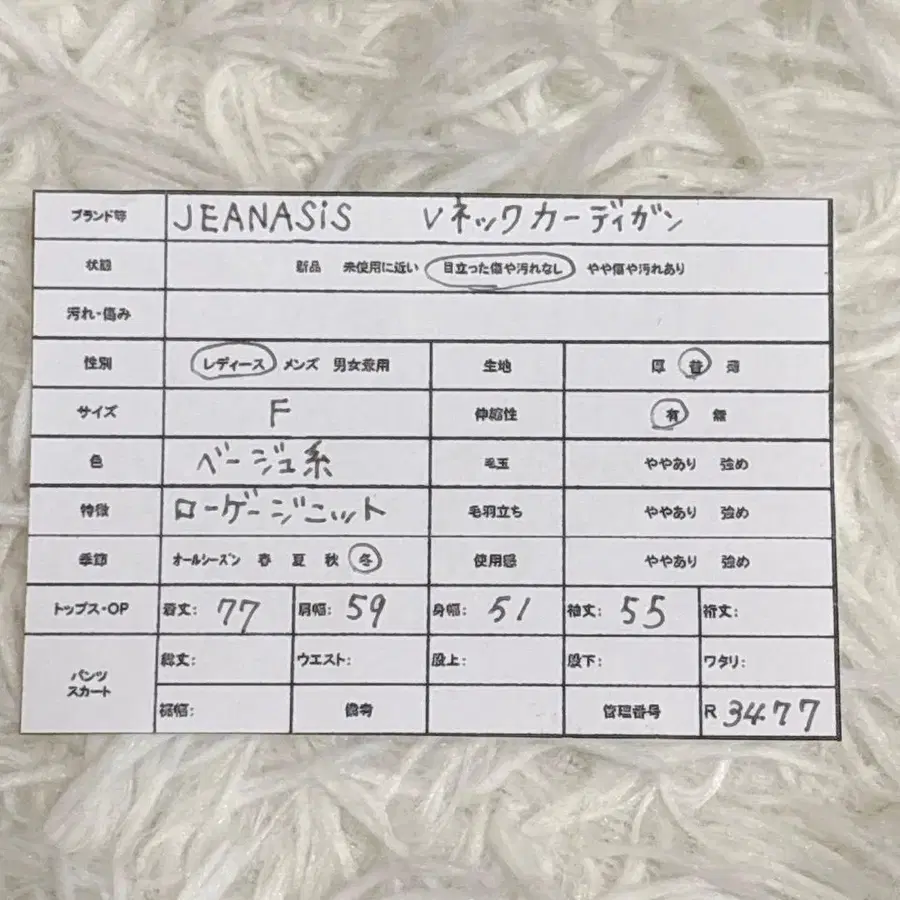 ブランド等 JEANASiS Vネックカーディガン
状態 新品 未使用に近い 目立った傷や汚れなし やや傷や汚れあり
汚れ・傷み
性別 レディース メンズ 男女兼用 生地 厚 普 薄
サイズ F 伸縮性 有 無
色 ベージュ系 毛玉 ややあり 強め
特徴 ローゲージニット 毛羽立ち ややあり 強め
季節 オールシーズン 春 夏 秋 冬 使用感 ややあり 強め
トップス・OP 着丈: 77 肩幅: 59 身幅: 51 袖丈: 55 裄丈:
パンツ
スカート
総丈: ウエスト: 股上: 股下: ワタリ:
裾幅: 備考 管理番号 R 3477